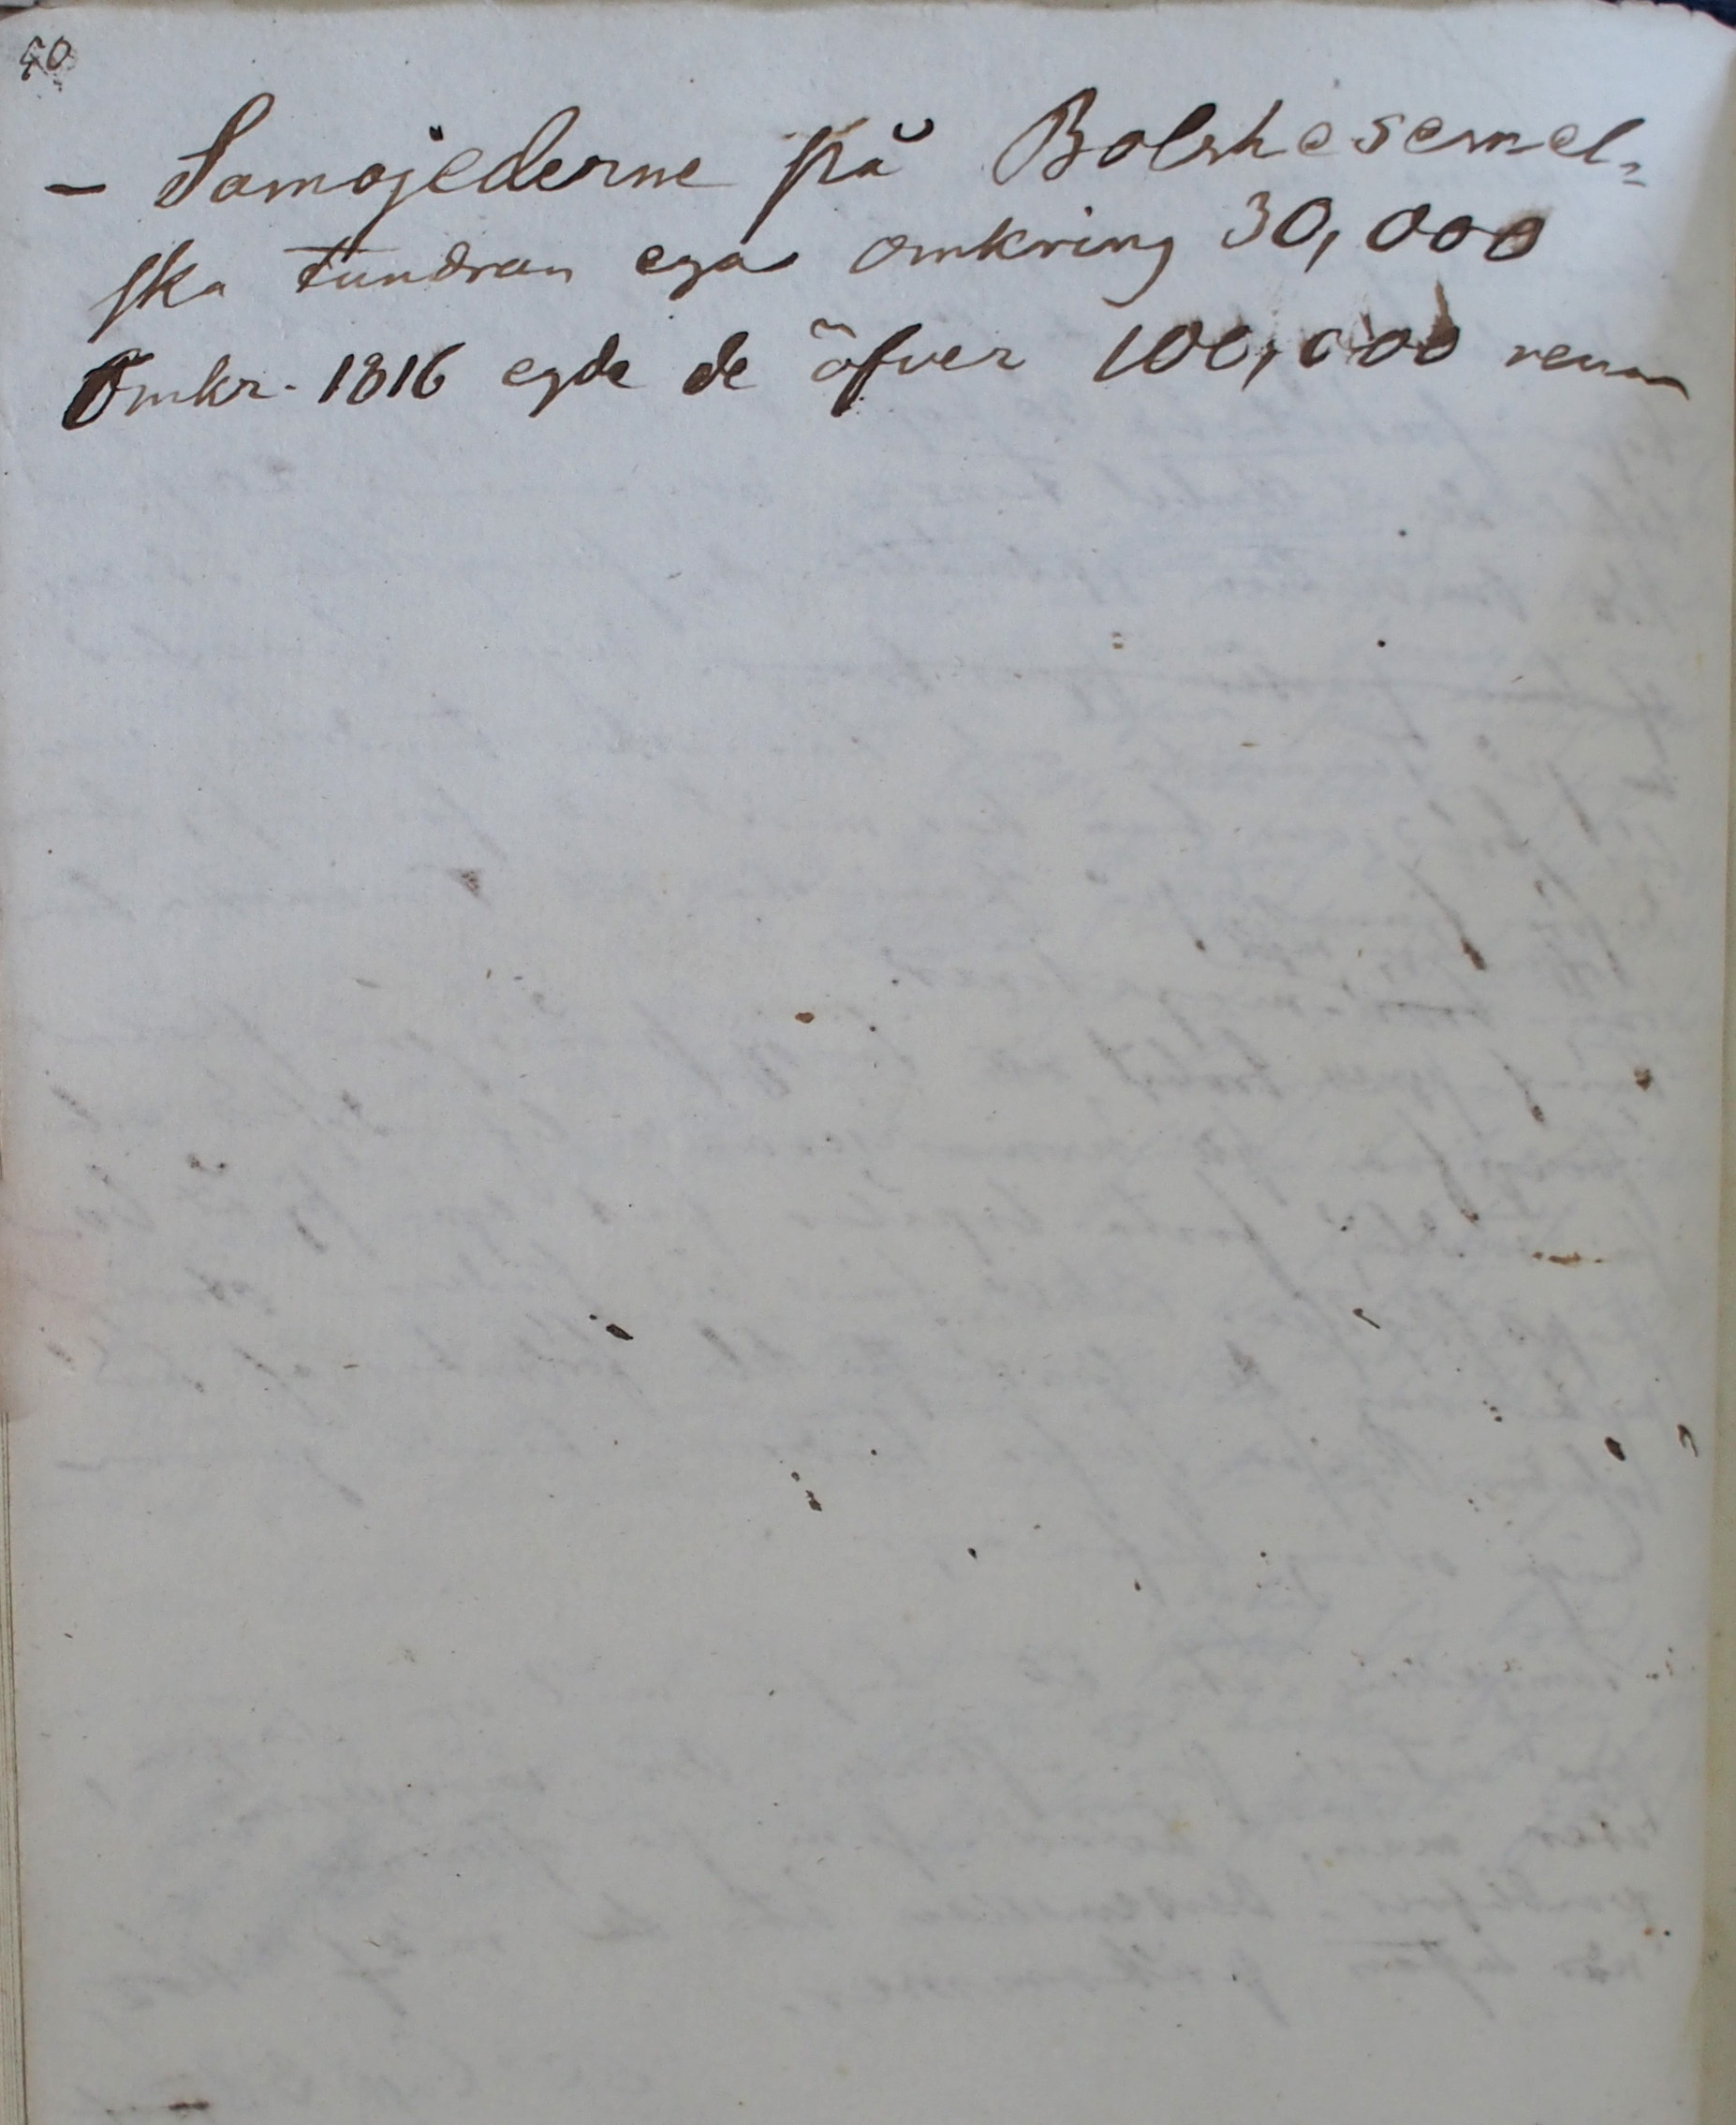 50
– Samojederne på Bolshesemel=
ska tundran ega omkring 30,000
Omkr. 1816 egde de öfver 100,000 renar